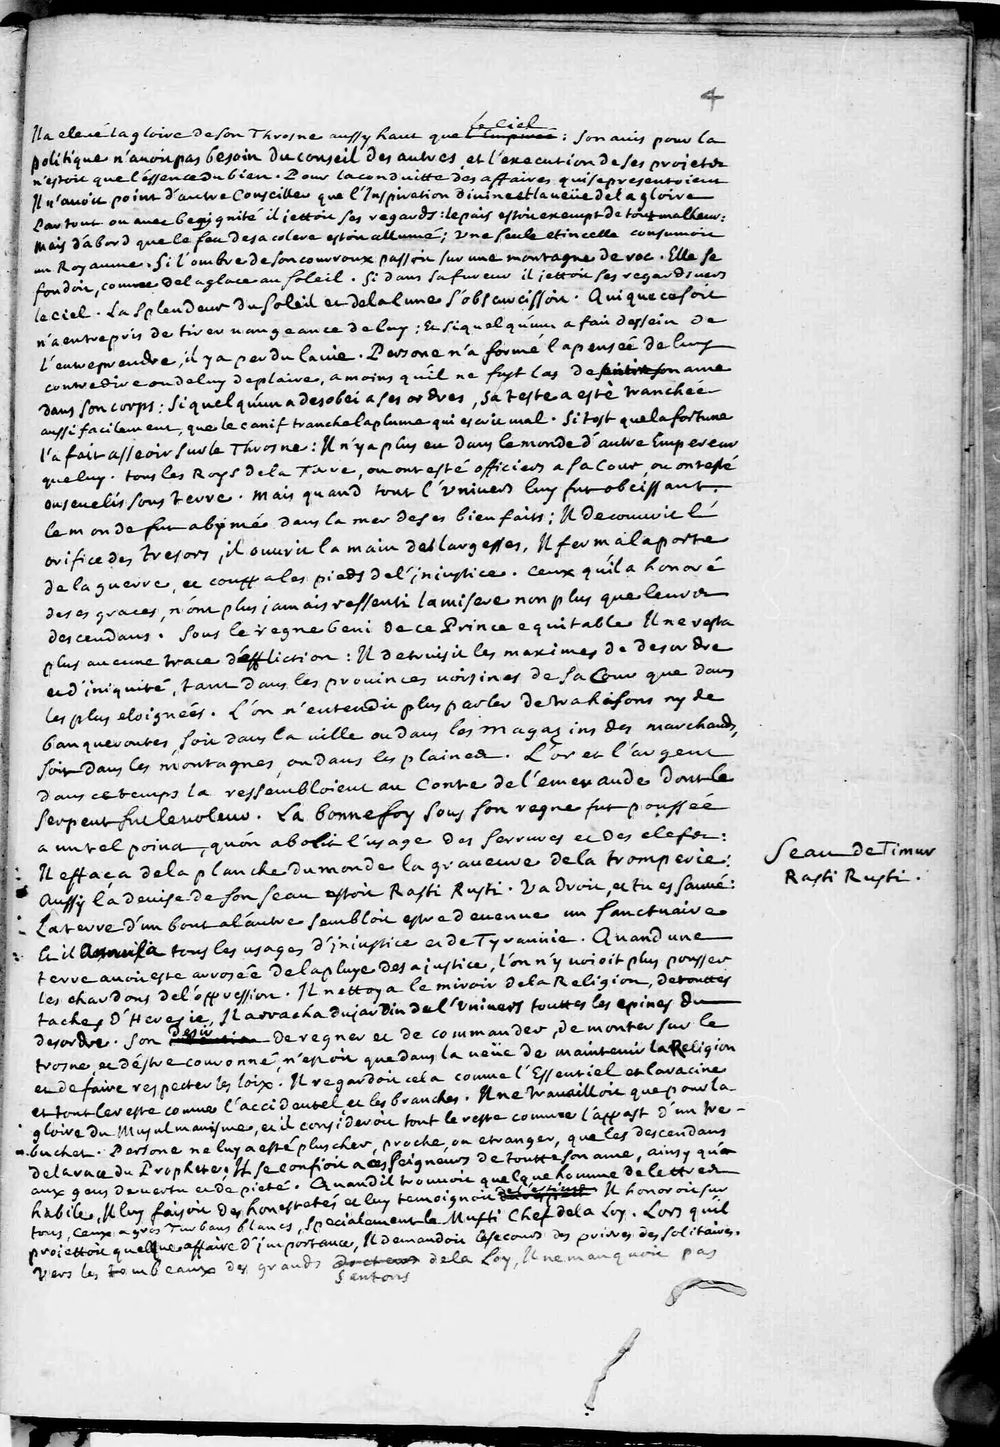 4
le Ciel
Il a elevé la gloire de son Throsne aussy haut que l'empirée : son avis pour la
politique n'avoit pas besoin du conseil des autres et l'execution de ses projets
n'estoit que l'éssence du bien . Pour la conduitte des affaires qui se presentoient
Il n'avoit point d'autre Conseiller que l'Inspiration divine et la veüe de la gloire
Par tout ou avec benignité il jettoit ses regards : le païs estoit exempt de tout malheur :
Mais d'abord que le feu de sa colere estoit allumé ; Vne seule etincelle consumoit
un Royaume . Si l'ombre de son courroux passoit sur une montagne de roc . Elle se
fondoit, comme de la glace au soleil . Si dans sa fureur il jettoit ses regards vers
le ciel . La splendeur du soleil et de la lune s'obscurcissoit . Qui que ce soit
n'a entrepris de tirer vangeance de luy ; Et si quelqu'un a fait dessein de
l'entreprendre, il y a perdu la vie . Persone n'a formé la pensée de luy
contredire ou de luy deplaire, a moins qu'il ne fust las de son ame
dans son corps : Si quelqu'un a desobéi a ses ordres, sa teste a esté tranchée
aussi facilement, que le canif tranche la plume qui escrit mal . Si tost que la fortune
l'a fait asseoir sur le Throsne : Il n'y a plus eu dans le monde d'autre Empereur
que luy . tous les Roys de la Terre, ou ont esté officiers a sa Cour, ou ont esté
ensevelis sous terre . Mais quand tout l'Univers luy fut obeissant .
le monde fut abymé dans la mer de ses bienfaits ; Il decouvrit l'
orifice des tresors, il ouvrit la main des largesses, Il ferma la porte
de la guerre, et couppa les pieds de l'injustice . Ceux qu'il a honoré
de ses graces, n'ont plus jamais ressenti la misere non plus que leurs
descendans . Sous le regne beni de ce Prince equitable Il ne resta
plus aucune trace d'affliction : Il detruisit les maximes de desordre
et d'iniquité, tant dans les provinces voisines de sa Cour que dans
les plus eloignées . L'on n'entendit plus parler de trahisons ny de
banqueroutes, soit dans la ville ou dans les magazins des marchands,
soit dans les montagnes, ou dans les plaines . L'or et l'argent
dans ce temps la ressembloient au Conte de l'emeraude dont le
serpent fut le voleur . La bonne foy sous son regne fut poussée
a un tel point, qu'on abolit l'usage des serrures et des clefs :
Il effaça de la planche du monde la graveure de la tromperie :
Aussy la devise de son seau estoit Rasti Rusti . Va droit, et tu es sauvé :
Seau de Timur
Rasti Rusti .
La terre d'un bout a l'autre sembloit estre devenue un sanctuaire
Et il tous les usages d'injustice et de Tyrannie . Quand une
terre avoit esté arrosée de la pluye de sa justice, l'on n'y voioit plus pousser
les chardons de l'oppression . Il nettoya le miroir de la Religion, de touttes
taches d'Heresie, Il arracha du jardin de l'Univers touttes les epines du
desordre . Son desir de regner et de commander, de monter sur le
trosne, et d'éstre couronné, n'estoit que dans la veüe de maintenir la Religion
et de faire respecter les loix . Il regardoit cela comme l'Essentiel et la racine
et tout le reste comme l'accidentel, et les branches . Il ne travailloit que pour la
gloire du Musulmanisme, et il consideroit tout le reste comme l'appast d'un tre-
buchet . Persone ne luy a esté plus cher, proche, ou etranger, que les descendans
de la race du Prophete ; Il se confioit a ces seigneurs de toutte son ame, ainsy qu'
aux gens de vertu et de pieté . Quand il trouvoit quelque homme de lettres
habile, Il luy faisoit des honestetés et luy temoignoit de l'estime Il honoroit sur
tous, ceux a gros Turbans blancs, specialement le Mufti Chef de la Loy . Lors qu'il
projettoit quelque affaire d'importance, Il demandoit le secours des prieres des solitaires .
Vers les tombeaux des grands docteurs de la Loy, Il ne manquoit pas
Santons